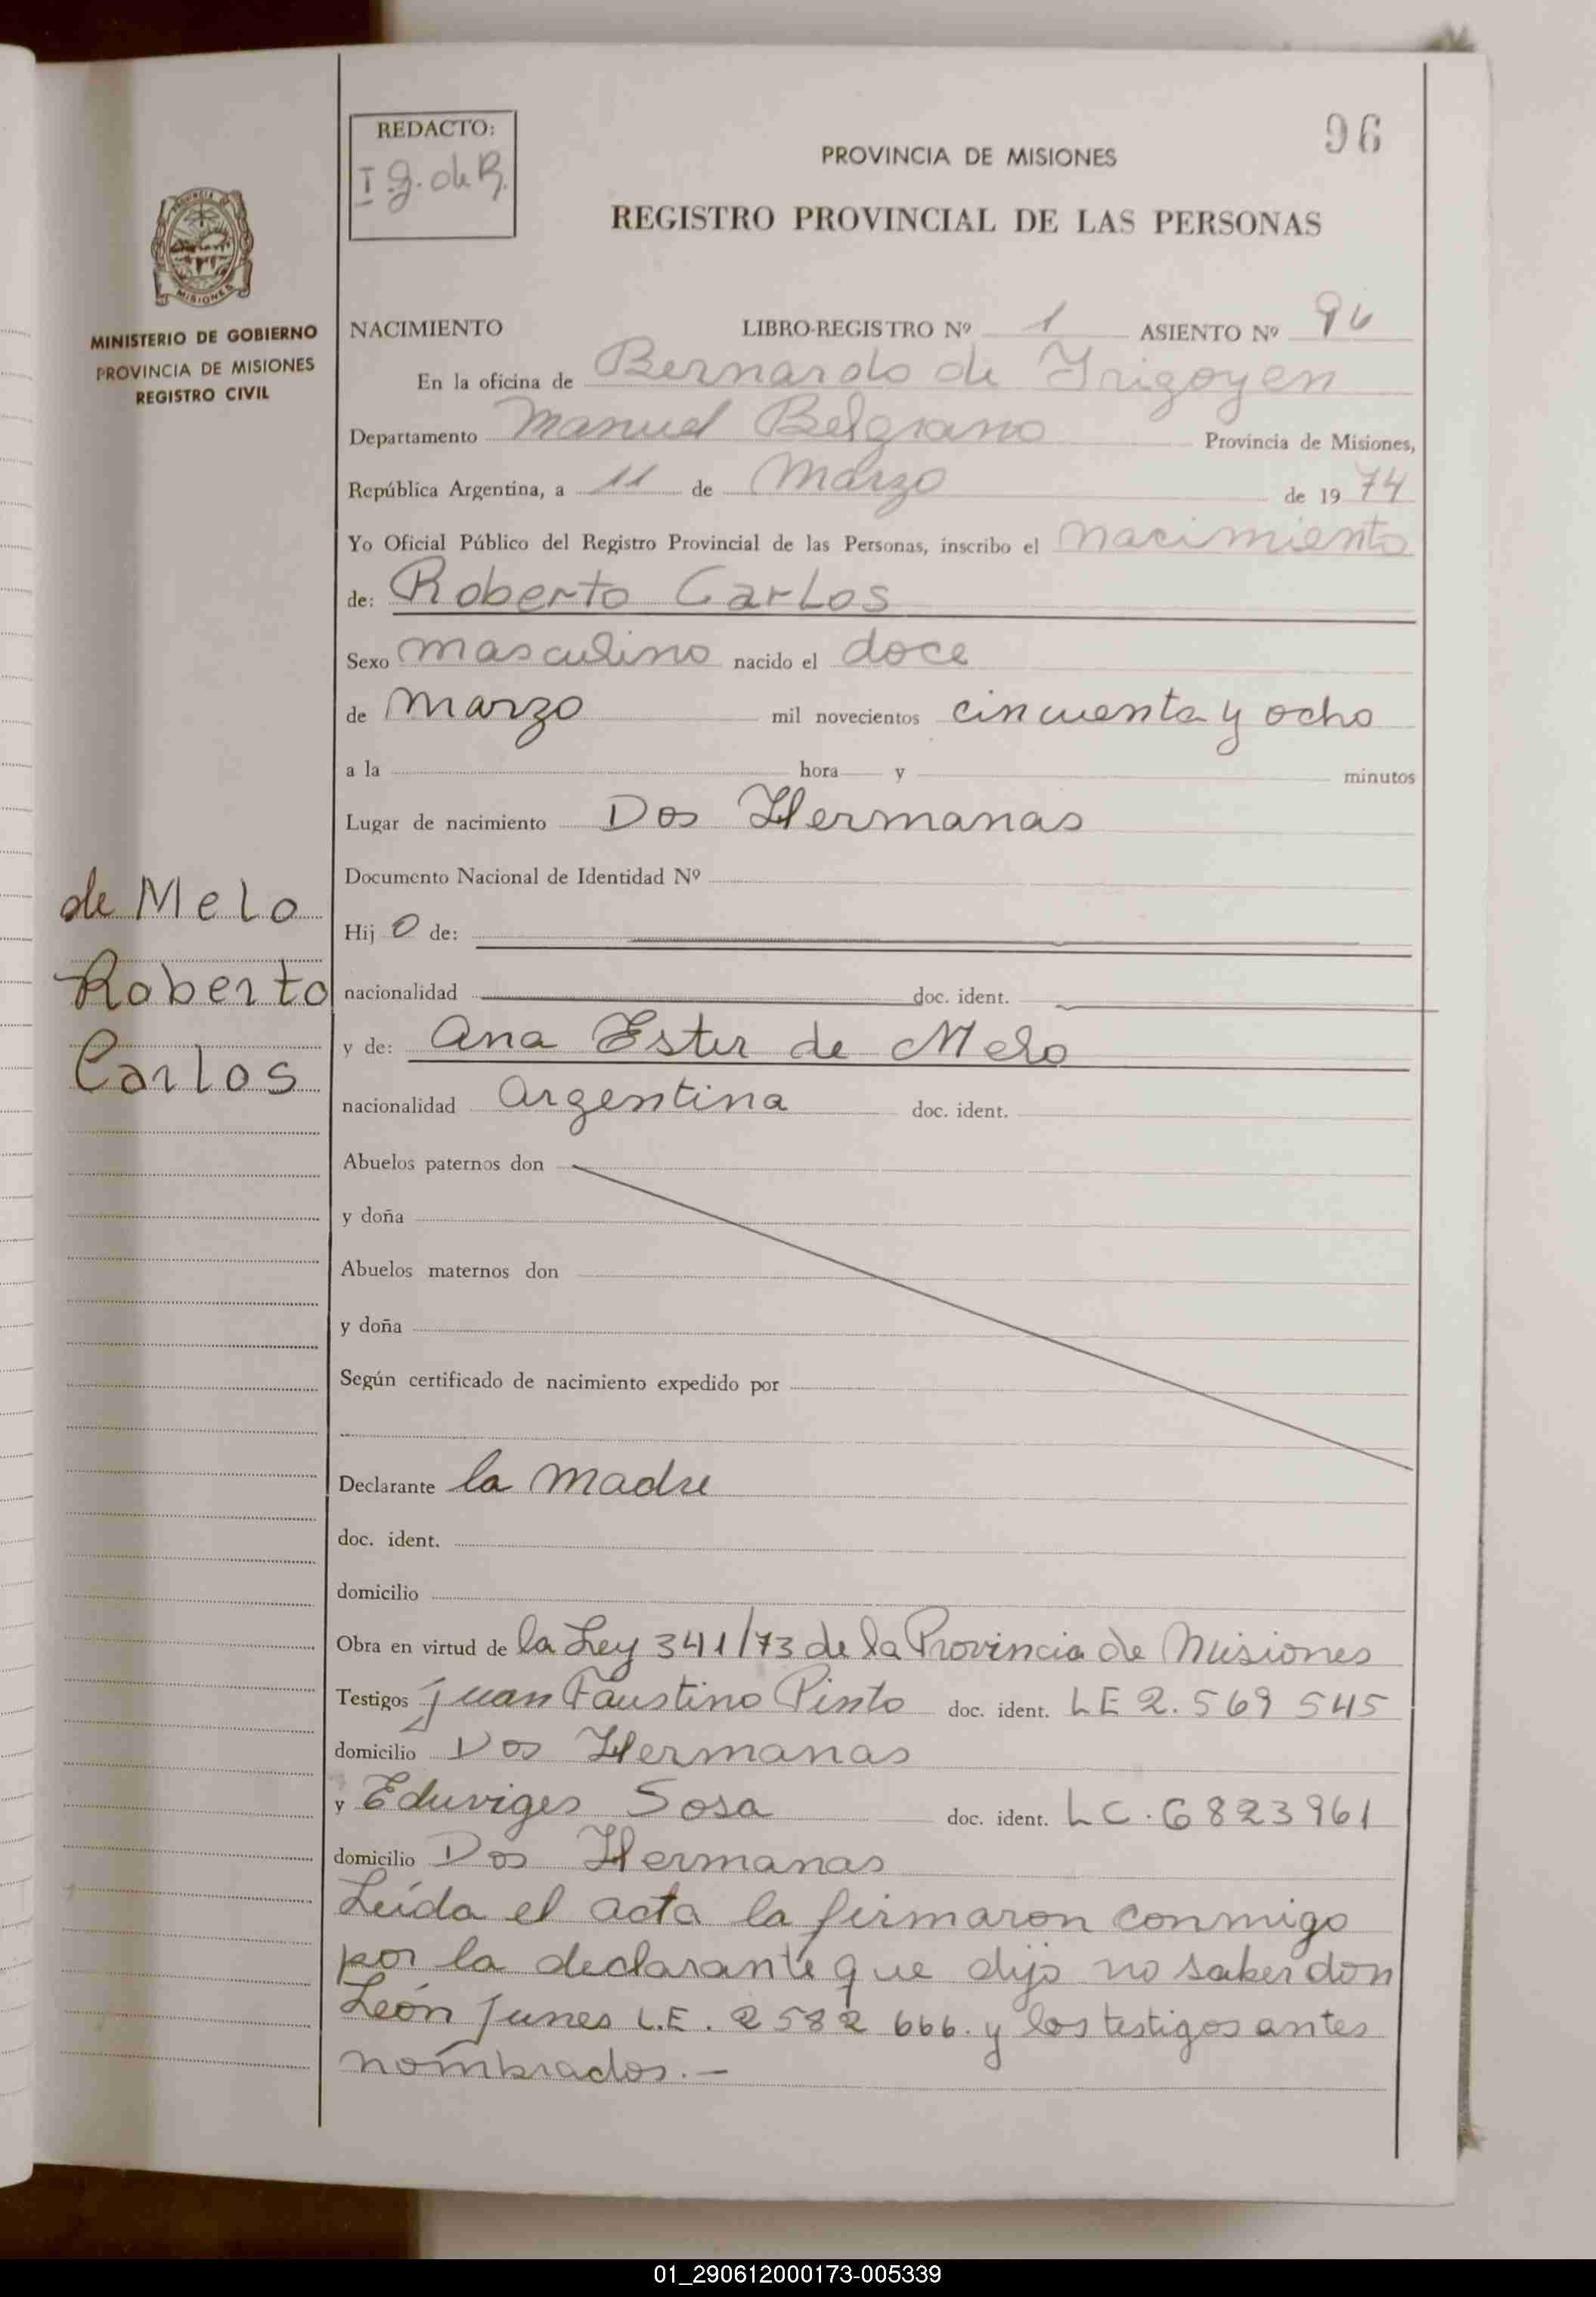 REDACTO:
I g. de R.
96
PROVINCIA DE MISIONES
REGISTRO PROVINCIAL DE LAS PERSONAS
PROVINCIA DE
MISIONES
MINISTERIO DE GOBIERNO
PROVINCIA DE MISIONES
REGISTRO CIVIL
NACIMIENTO LIBRO-REGISTRO Nº 1 ASIENTO Nº 96
En la oficina de Bernardo de Irigoyen
Departamento Manuel Belgrano Provincia de Misiones,
República Argentina, a 11 de Marzo de 1974
Yo Oficial Público del Registro Provincial de las Personas, inscribo el nacimiento
de: Roberto Carlos
Sexo masculino nacido el doce
de marzo mil novecientos cincuenta y ocho
a la hora y minutos
Lugar de nacimiento Dos Hermanas
Documento Nacional de Identidad Nº
de Melo
Roberto
Carlos
Hijo de:
nacionalidad doc. ident.
y de: Ana Ester de Melo
nacionalidad Argentina doc. ident.
Abuelos paternos don
y doña
Abuelos maternos don
y doña
Según certificado de nacimiento expedido por
Declarante la madre
doc. ident.
domicilio
Obra en virtud de la Ley 341/73 de la Provincia de Misiones
Testigos Juan Faustino Pinto doc. ident. LE 2.569 545
domicilio Dos Hermanas
y Eduviges Sosa doc. ident. LC. 6823961
domicilio Dos Hermanas
Leída el acta la firmaron conmigo
por la declarante que dijo no saber don
León Junes L.E. 2582 666. y los testigos antes
nombrados.-
01_290612000173-005339